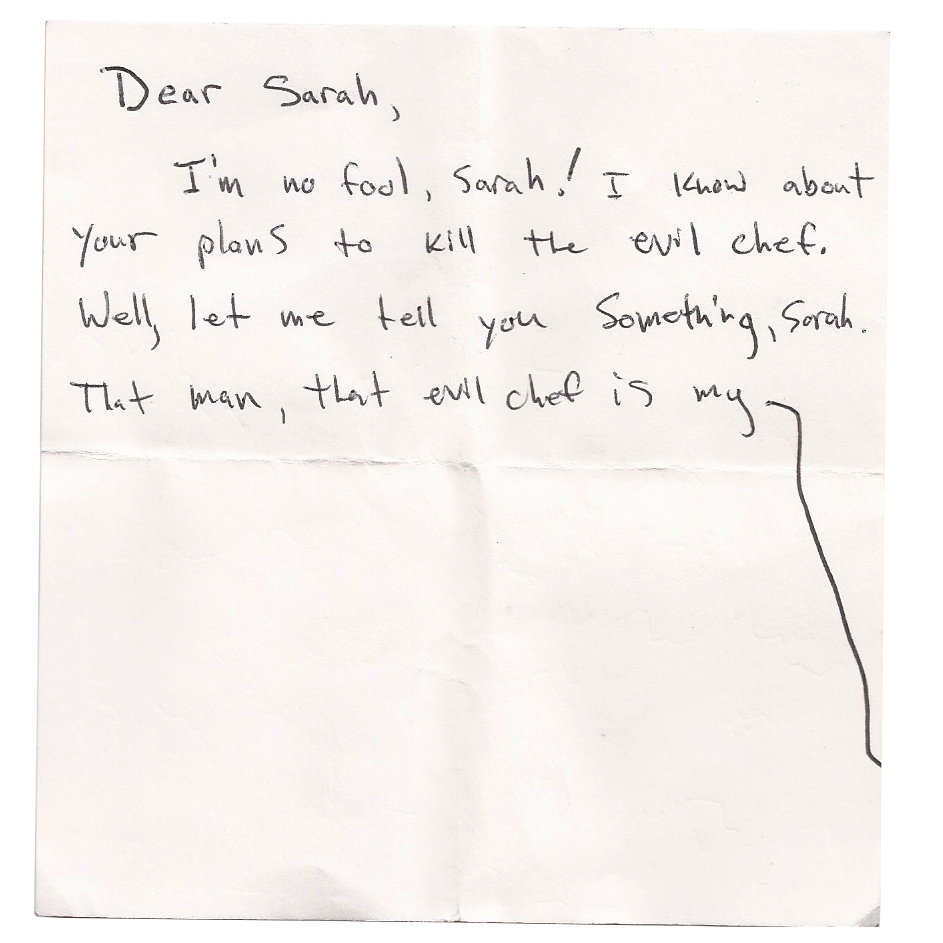 Dear Sarah,
I'm no fool, Sarah! I know about
your plans to kill the evil chef.
Well, let me tell you something, Sarah.
That man, that evil chef is my